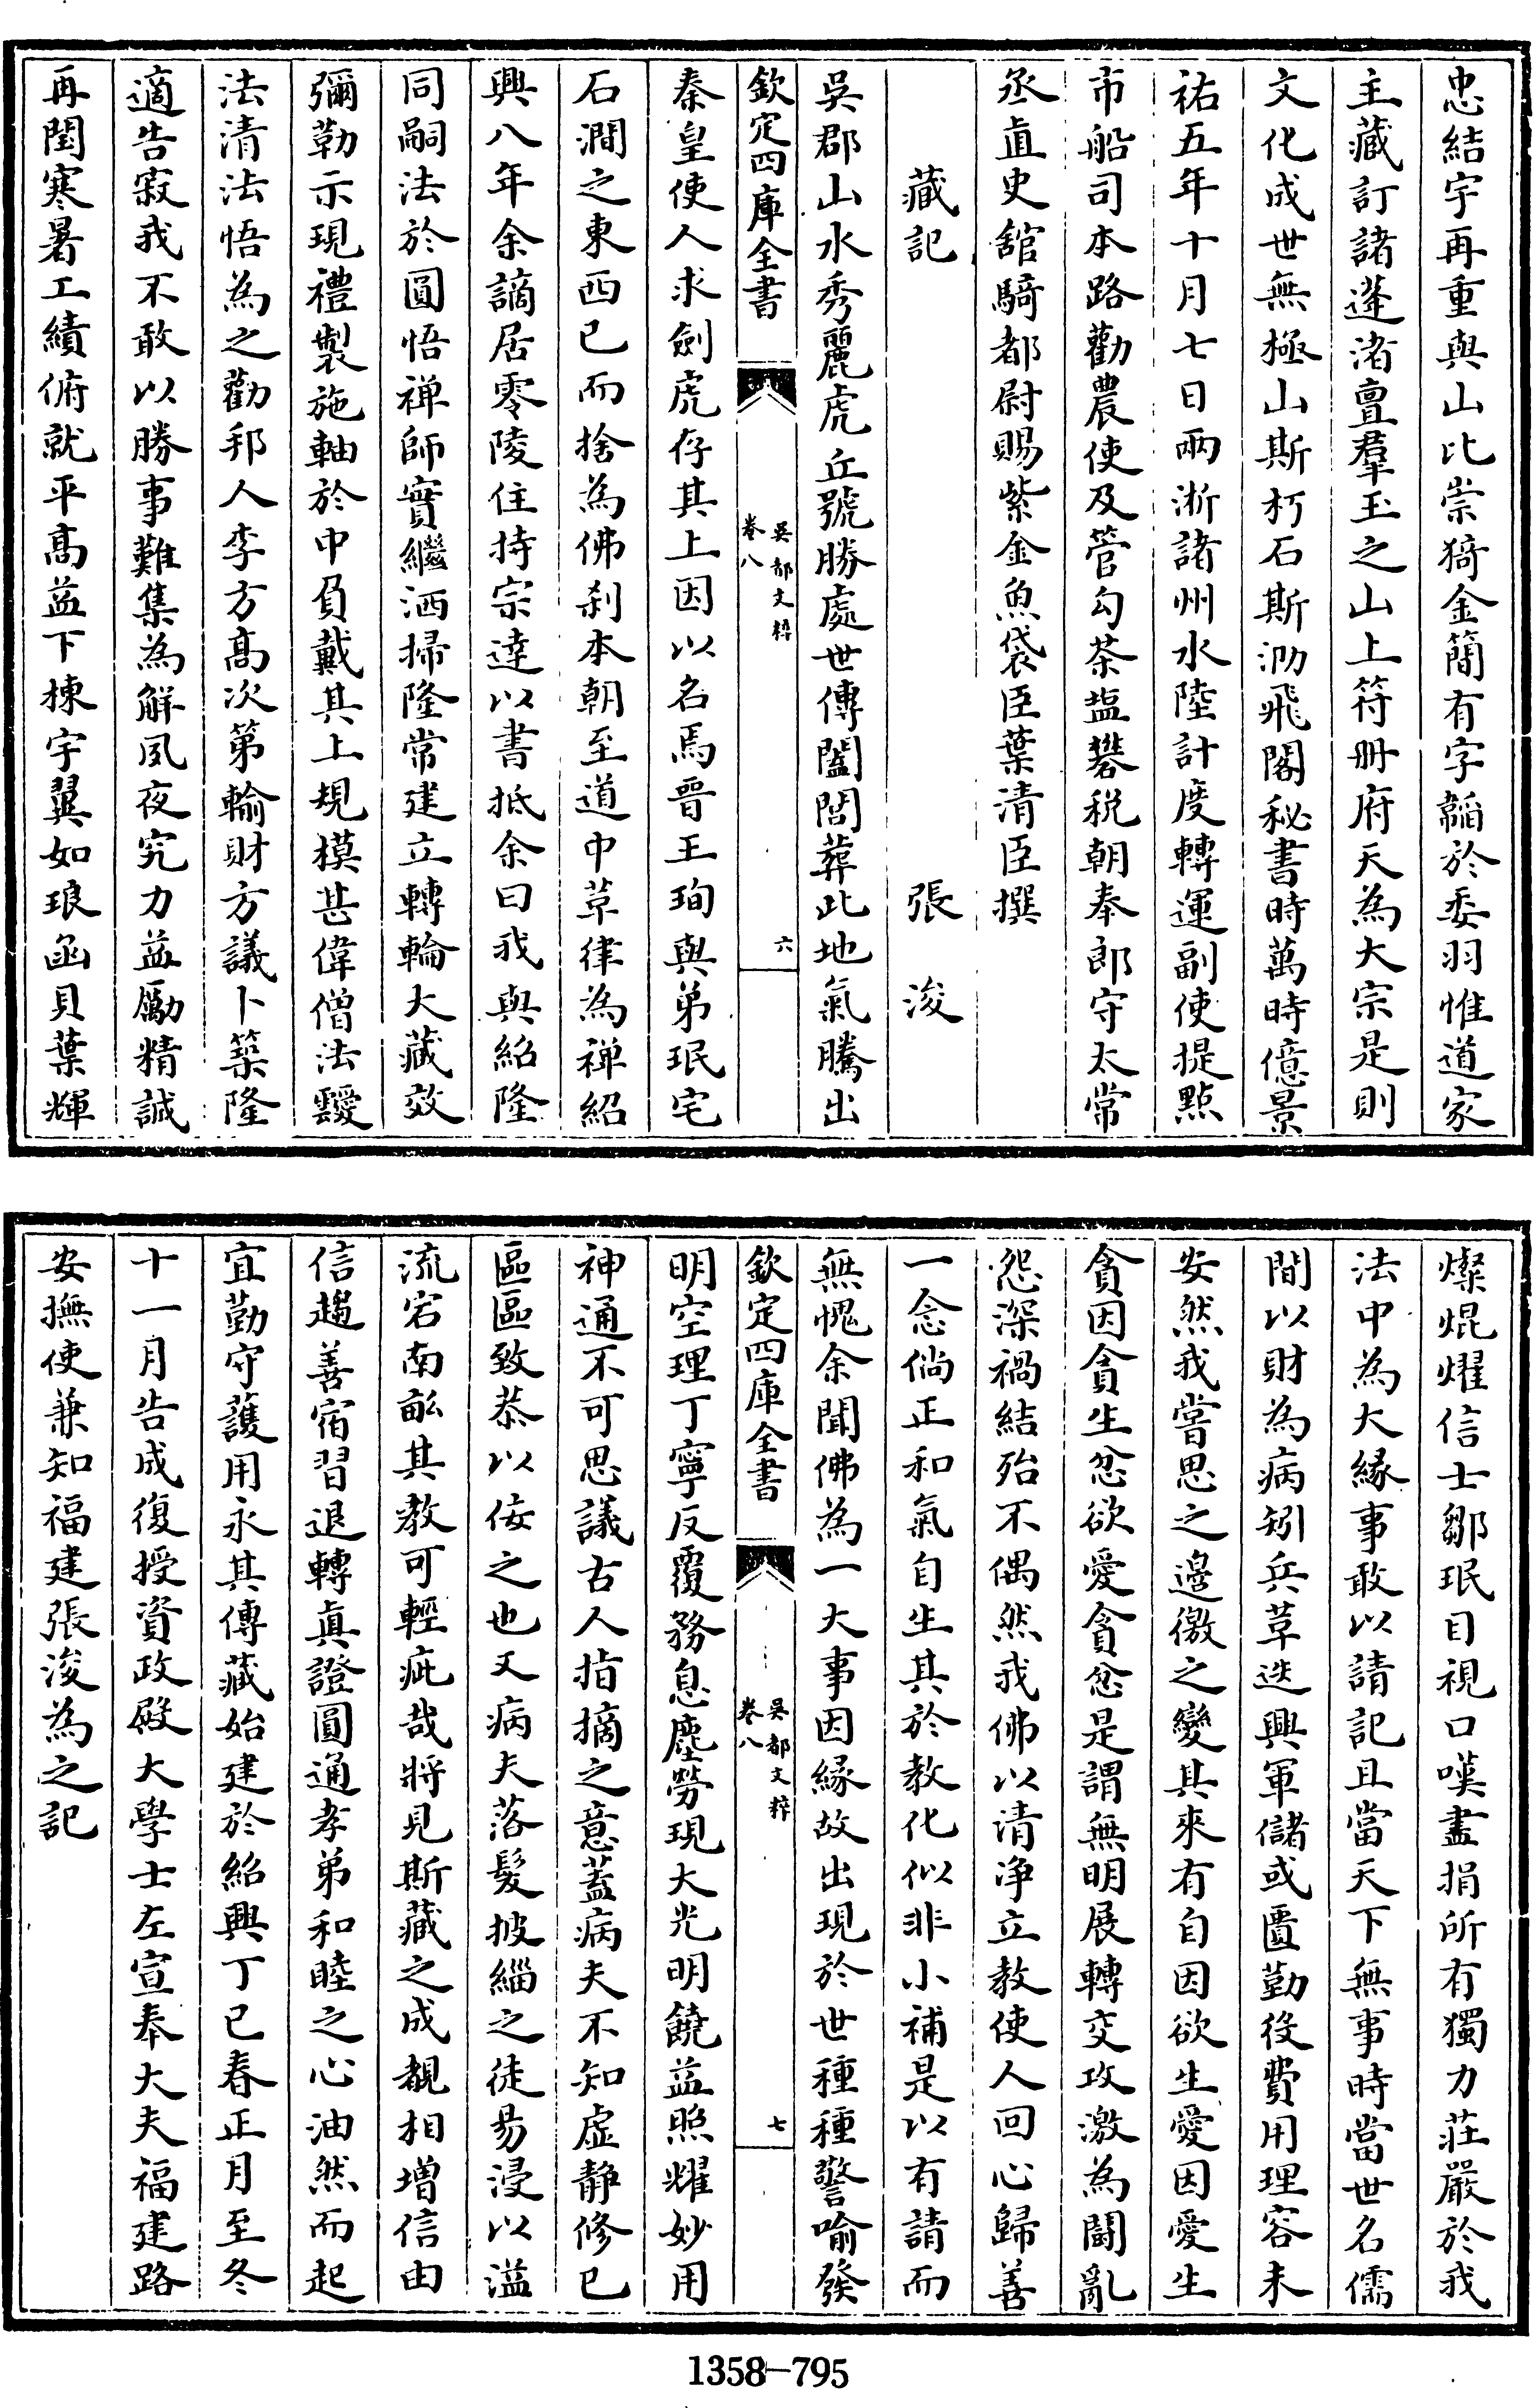 忠結宇再重與山比崇猗金簡有字韜於委羽惟道家
主藏訂諸蓬渚亶羣玉之山上符冊府天為大宗是則
文化成世無極山斯朽石斯泐飛閣秘書時萬時億景
祐五年十月七日兩淅諸州水陸計度轉運副使提㸃
市船司本路勸農使及管勾茶塩礬稅朝奉郎守太常
丞直史舘騎都尉賜紫金魚袋臣葉清臣撰
藏記　張浚
吳郡山水秀麗虎丘號勝處世傳闔閭葬此地氣騰出
欽定四庫全書　吳都文粹　卷八　六
秦皇使人求劍虎存其上因以名焉晉王珣與弟珉宅
石澗之東西已而捨為佛刹本朝至道中革律為禅紹
興八年余謫居零陵住持宗達以書抵余曰我與紹隆
同嗣法於圓悟禅師實繼洒掃隆常建立轉輪大藏效
彌勒示現禮製施軸於中負戴其上規模甚偉僧法靉
法清法悟為之勸邦人李方髙次第輸財方議卜築隆
適告寂我不敢以勝事難集為解夙夜究力益勵精誠
再閏寒暑工績俯就平髙益下棟宇翼如琅函貝葉輝
燦焜燿信士鄒珉目視口嘆盡捐所有獨力莊嚴於我
法中為大緣事敢以請記且當天下無事時當世名儒
間以財為病矧兵革迭興軍儲或匱勤役費用理容未
安然我嘗思之邊徼之變其來有自因欲生愛因愛生
貪因貪生忿欲愛貪忿是謂無明展轉交攻激為鬭亂
怨深禍結殆不偶然我佛以清净立教使人回心歸善
一念倘正和氣自生其於教化似非小補是以有請而
無愧余聞佛為一大事因緣故出現於世種種警喻發
欽定四庫全書　吳都文粹　卷八　七
明空理丁寧反覆務息塵勞現大光明饒益照耀妙用
神通不可思議古人指摘之意蓋病夫不知虛静修已
區區致恭以佞之也又病夫落髮披緇之徒易浸以溢
流宕南畝其教可輕疵哉將見斯藏之成覩相増信由
信趨善宿習退轉真證圓通孝弟和睦之心油然而起
宜勤守護用永其傳藏始建於紹興丁已春正月至冬
十一月告成復授資政殿大學士左宣奉大夫福建路
安撫使兼知福建張浚為之記
1358-795